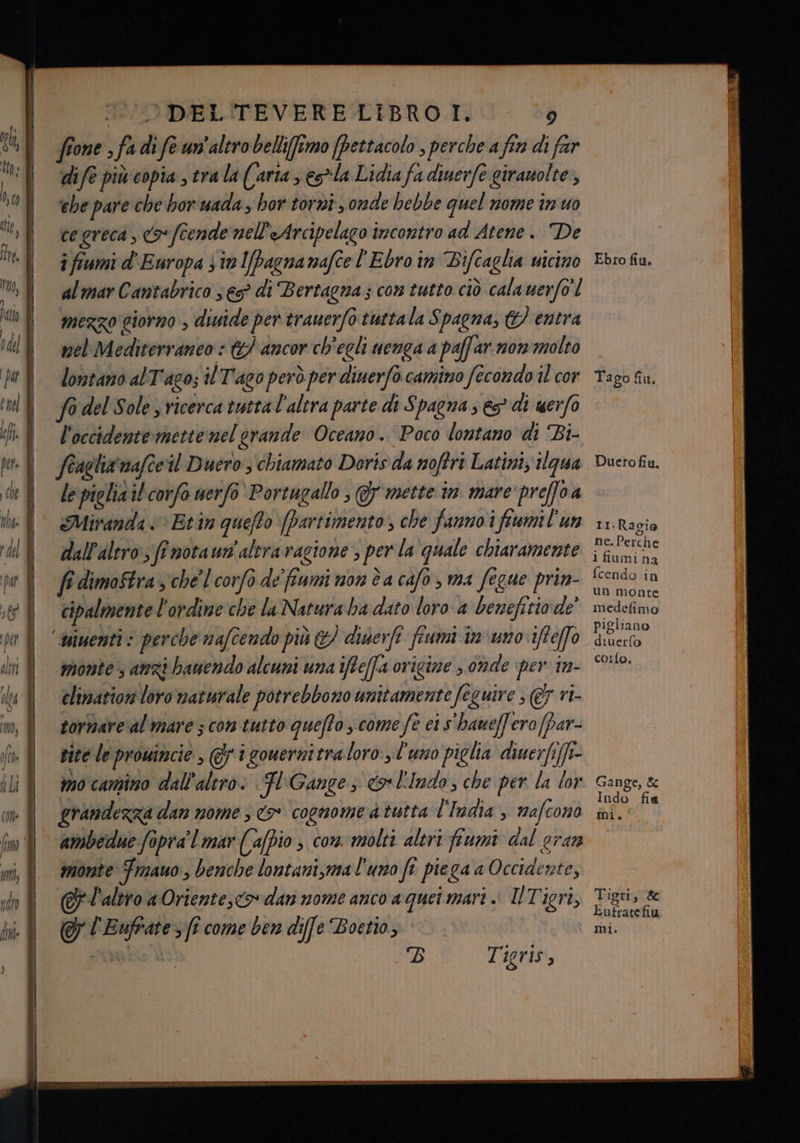 DEL TEVERE LIBRO I. 9
ſione, fa di ſe un'altro belliſſimo ſpettacolo, perche a fin di far
di ſe più copia, tra la Caria, & la Lidia fa diuerſe girauolte,
che pare che hor uada, hor torni, onde hebbe quel nome in uo
ce greca, & ſcende nell'Arcipelago incontro ad Atene. De
i fiumi d'Europa, in Iſpagna naſce l'Ebro in Biſcaglia uicino
al mar Cantabrico, & di Bertagna; con tutto ciò cala uerſo'l
mezzo giorno, diuide per trauerſo tutta la Spagna, & entra
nel Mediterraneo: & ancor ch'egli uenga a paſſar non molto
lontano al Tago; il Tago però per diuerſo camino ſecondo il cor
ſo del Sole, ricerca tutta l'altra parte di Spagna, & di uerſo
l'occidente mette nel grande Oceano. Poco lontano di Bi-
ſcaglia naſce il Duero, chiamato Doris da noſtri Latini, ilqua
le piglia il corſo uerſo Portugallo, & mette in mare preſſo a
Miranda. Et in queſto ſpartimento, che fanno i fiumi l'un
dall'altro, ſi nota un'altra ragione, per la quale chiaramente
ſi dimoſtra, che'l corſo de' fiumi non è a caſo, ma ſegue prin-
cipalmente l'ordine che la Natura ha dato loro a benefitio de'
uiuenti: perche naſcendo più & diuerſi fiumi in uno iſteſſo
monte, anzi hauendo alcuni una iſteſſa origine, onde per in-
clination loro naturale potrebbono unitamente ſeguire, & ri-
tornare al mare; con tutto queſto, come ſe ei s'haueſſero ſpar-
tite le prouincie, & i gouerni tra loro, l'uno piglia diuerſiſſi-
mo camino dall'altro. Il Gange, & l'Indo, che per la lor
grandezza dan nome, & cognome a tutta l'India, naſcono
ambedue ſopra'l mar Caſpio, con molti altri fiumi dal gran
monte Imauo, benche lontani, ma l'uno ſi piega a Occidente,
& l'altro a Oriente, & dan nome anco a quei mari. Il Tigri,
& l'Eufrate, ſi come ben diſſe Boetio,
B Tigris,
Ebro fiu.
Tago fiu.
Duero fiu.
11. Ragio
ne. Perche
i fiumi na
ſcendo in
un monte
medeſimo
pigliano
diuerſo
corſo.
Gange, &
Indo fiu
mi.
Tigri, &
Eufrate fiu
mi.